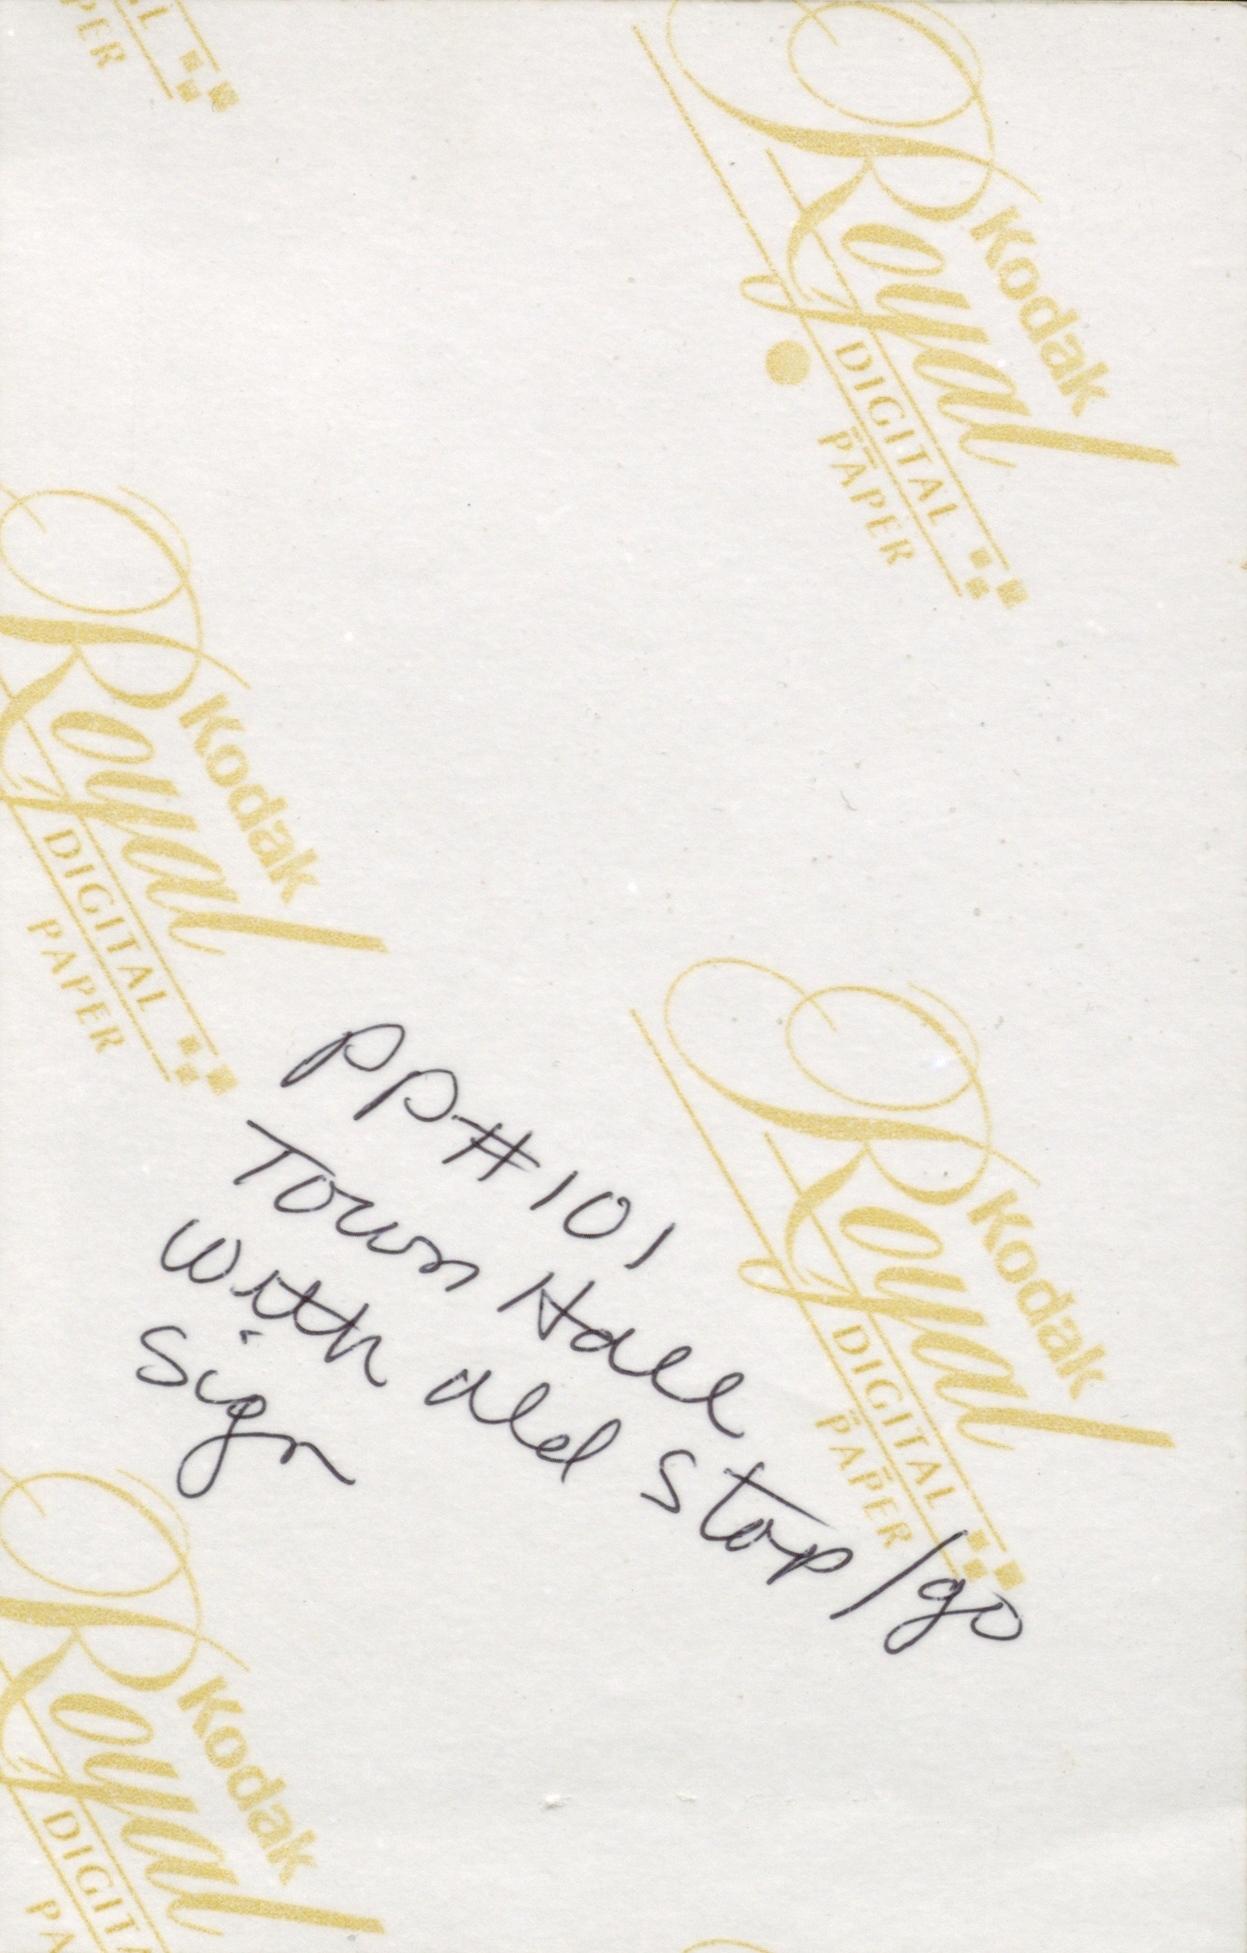 AL
PER
Kodak
Royal
DIGITAL
PAPER
Kodak
Royal
DIGITAL
PAPER
PP#101
Town Hall
with old stop/go
sign
Kodak
Royal
DIGITAL
PAPER
Kodak
Royal
DIGITA
PA